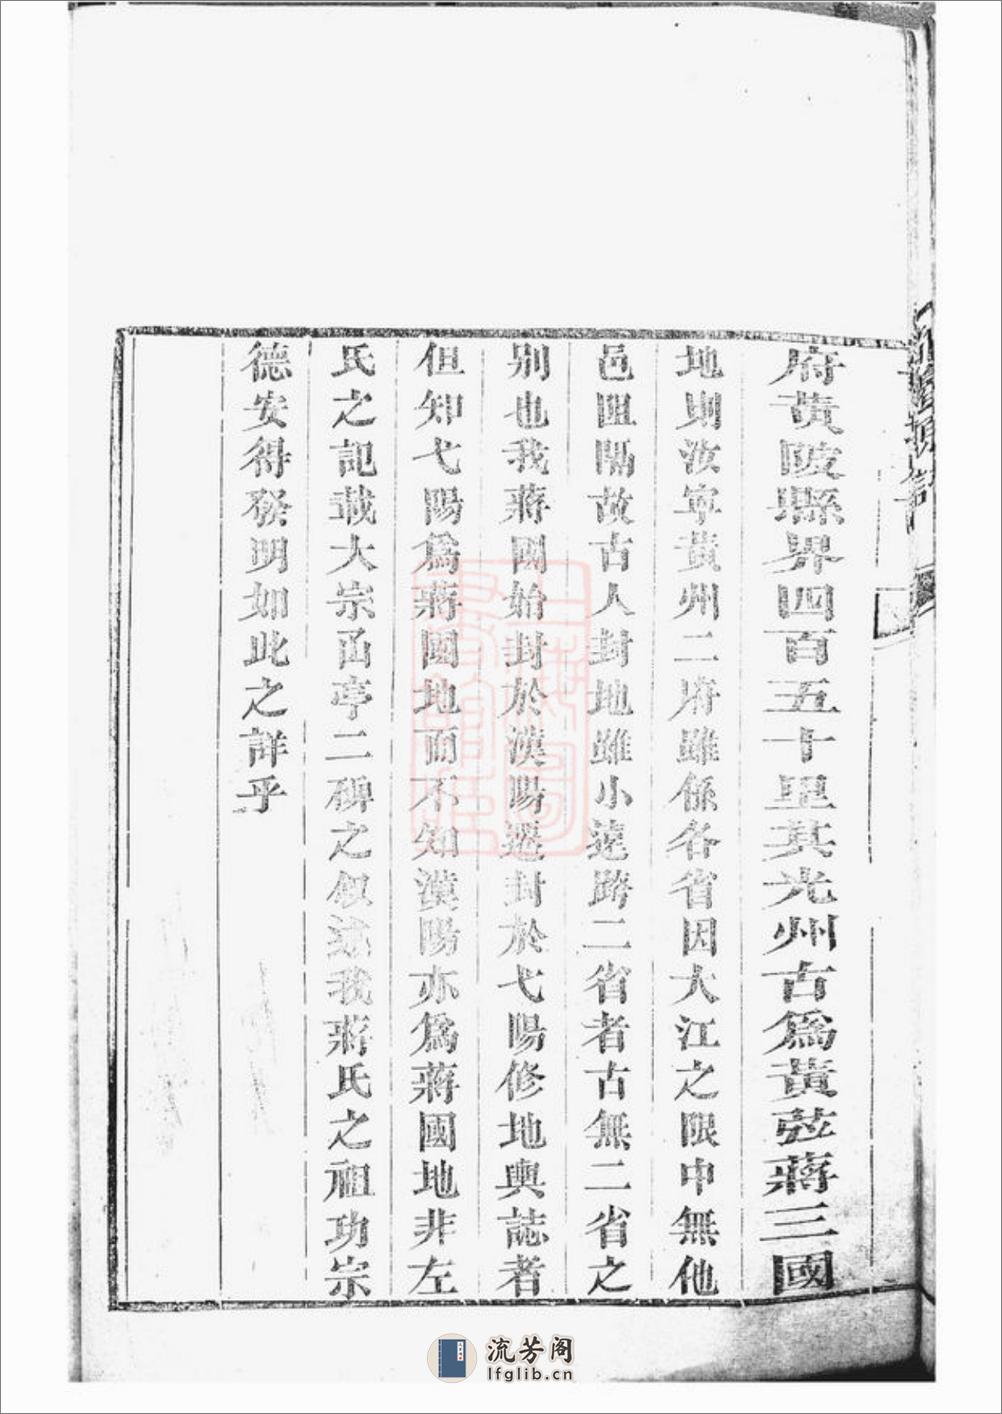 府黃陂縣界四百五十里其光州古爲黃弦蔣三國
地則汝寧黃州二府雖係各省因大江之限中無他
邑阻隔故古人封地雖小遠跨二省者古無二省之
别也我蔣國始封於漢陽遷封於弋陽修地輿誌者
但知弋陽爲蔣國地而不知漢陽亦爲蔣國地非左
氏之記載大宗函亭二碑之叙述我蔣氏之祖功宗
德安得發明如此之詳乎
流芳阁
lfglib.cn